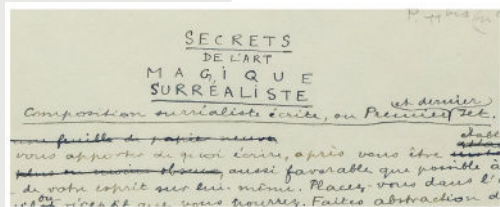 SECRETS
DE L'ART
MAGIQUE
SURRÉALISTE
Composition surréaliste écrite, ou Premier et dernier jet.
une feuille de papier neuve
vous apporter de quoi écrire, après vous être établi
plus ou moins obscur, aussi favorable que possible à
de votre esprit sur lui-même. Placez-vous dans l'
ou réceptif que vous pourrez. Faites abstraction d